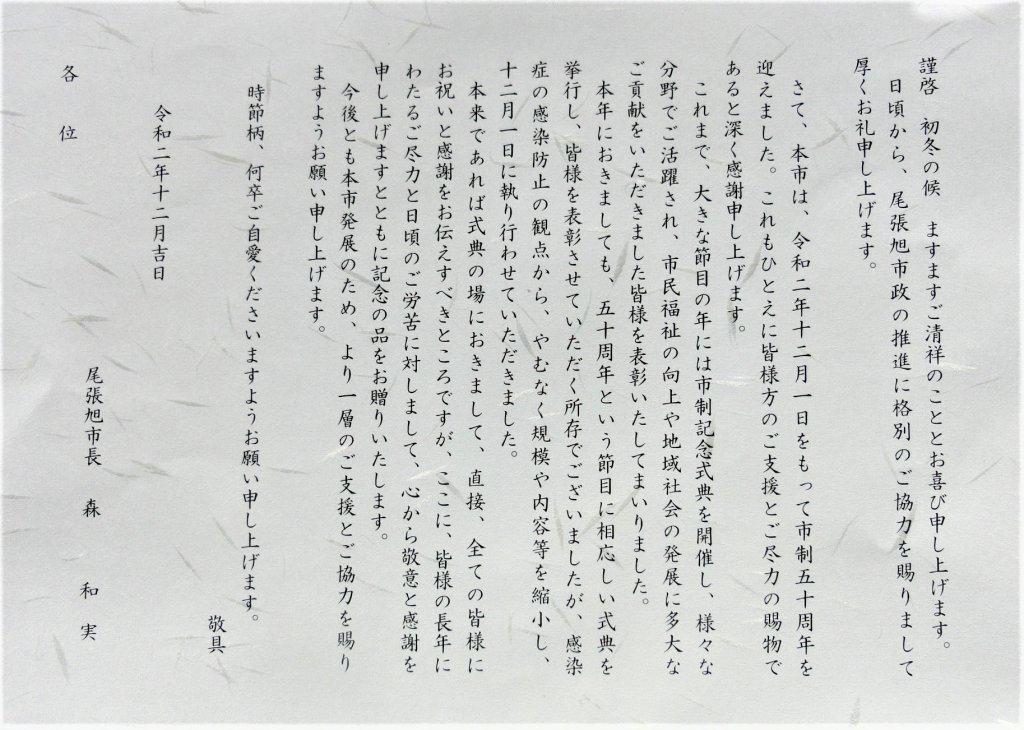 謹啓　初冬の候　ますますご清祥のこととお喜び申し上げます。
日頃から、尾張旭市政の推進に格別のご協力を賜りまして
厚くお礼申し上げます。
さて、本市は、令和二年十二月一日をもって市制五十周年を
迎えました。これもひとえに皆様方のご支援とご尽力の賜物で
あると深く感謝申し上げます。
これまで、大きな節目の年には市制記念式典を開催し、様々な
分野でご活躍され、市民福祉の向上や地域社会の発展に多大な
ご貢献をいただきました皆様を表彰いたしてまいりました。
本年におきましても、五十周年という節目に相応しい式典を
挙行し、皆様を表彰させていただく所存でございましたが、感染
症の感染防止の観点から、やむなく規模や内容等を縮小し、
十二月一日に執り行わせていただきました。
本来であれば式典の場におきまして、直接、全ての皆様に
お祝いと感謝をお伝えすべきところですが、ここに、皆様の長年に
わたるご尽力と日頃のご労苦に対しまして、心から敬意と感謝を
申し上げますとともに記念の品をお贈りいたします。
今後とも本市発展のため、より一層のご支援とご協力を賜り
ますようお願い申し上げます。
時節柄、何卒ご自愛くださいますようお願い申し上げます。
敬具
令和二年十二月吉日
尾張旭市長　森　和　実
各　位